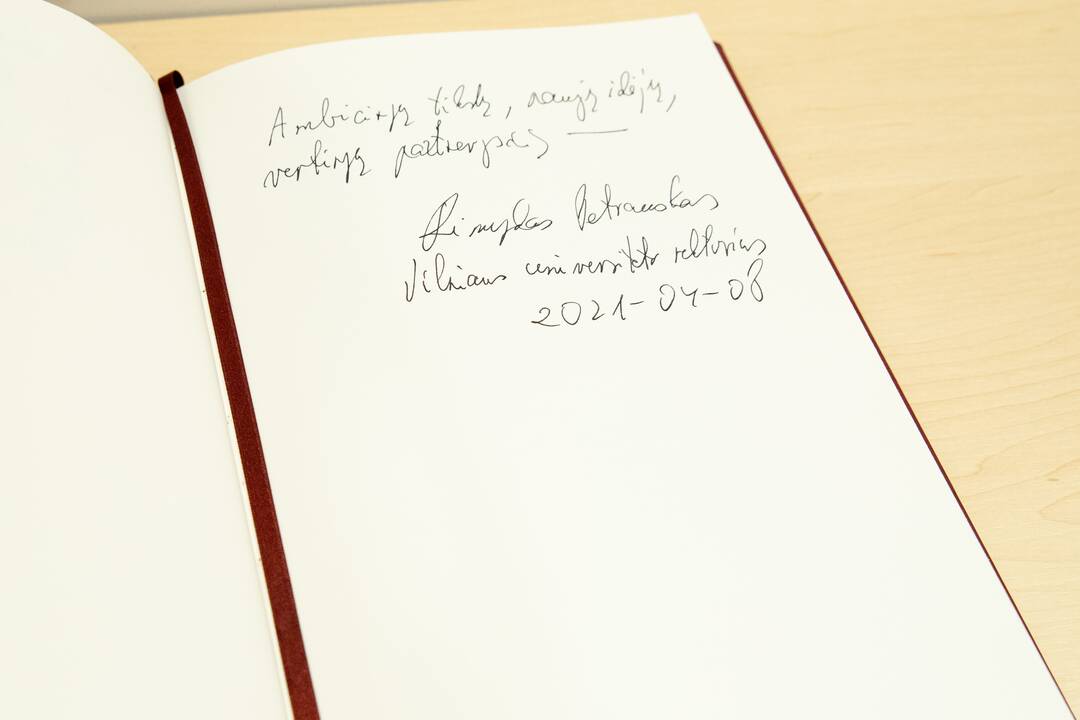 Ambicingų tikslų, naujų idėjų,
vertingų partnerysčių —
Rimvydas Petrauskas
Vilniaus universiteto rektorius
2021-04-08